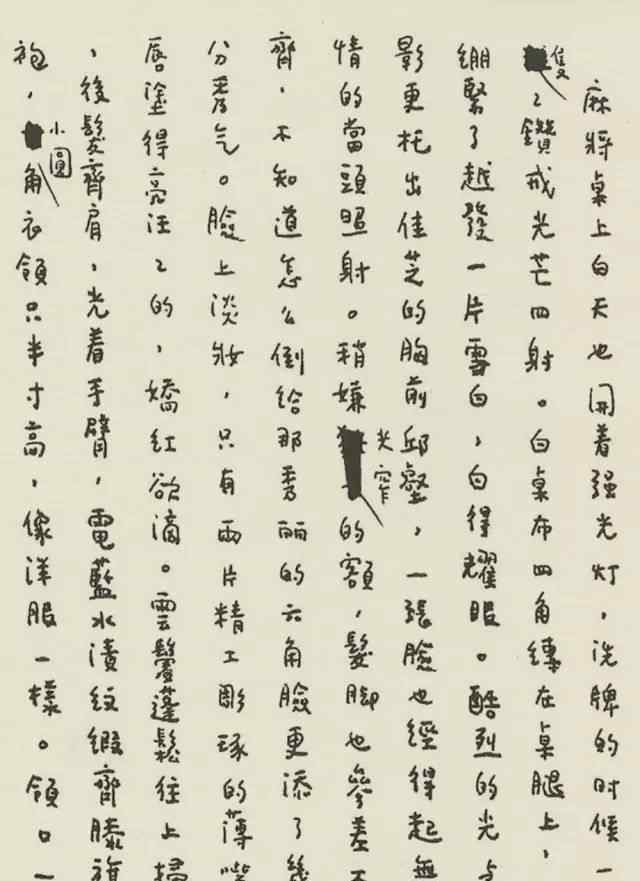 麻將桌上白天也開着强光灯，洗牌的时候一
隻々鑽戒光芒四射。白桌布四角縛在桌腿上，
绷緊了越發一片雪白，白得耀眼。酷烈的光与
影更托出佳芝的胸前邱壑，一張臉也經得起無
情的當頭照射。稍嫌尖窄的額，髮脚也參差不
齊，不知道怎么倒給那秀丽的六角臉更添了幾
分秀气。臉上淡妝，只有兩片精工彫琢的薄嘴
唇塗得亮汪々的，嬌紅欲滴。雲鬢蓬鬆往上掃
，後髮齊肩，光着手臂，電藍水漬紋緞齊膝旗
袍，小圓角衣領只半寸高，像洋服一樣。領口一